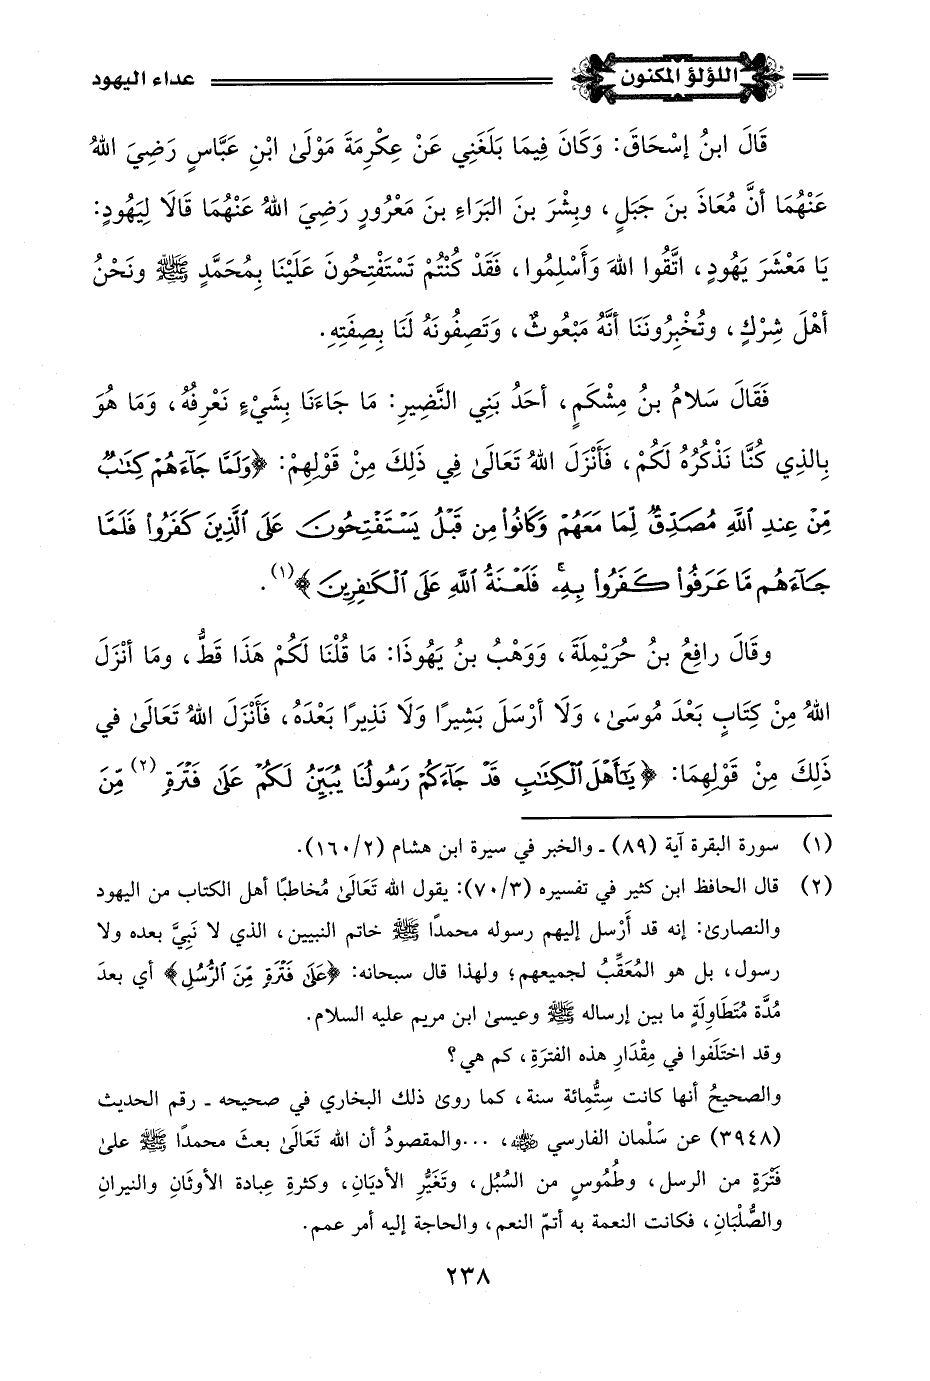 اللؤلؤ المكنون
عداء اليهود
قَالَ ابنُ إسْحَاقَ: وَكَانَ فِيمَا بَلَغَنِي عَنْ عِكْرِمَةَ مَوْلَىٰ ابْنِ عَبَّاسٍ رَضِيَ اللهُ
عَنْهُمَا أنَّ مُعَاذَ بنَ جَبَلٍ، وبِشْرَ بنَ البَرَاءِ بنَ مَعْرُورٍ رَضِيَ اللهُ عَنْهُمَا قَالَا لِيَهُودٍ:
يَا مَعْشَرَ يَهُودٍ، اتَّقُوا اللهَ وَأَسْلِمُوا، فَقَدْ كُنْتُمْ تَسْتَفْتِحُونَ عَلَيْنَا بِمُحَمَّدٍ ﷺ ونَحْنُ
أهْلَ شِرْكٍ، وتُخْبِرُونَنَا أنَّهُ مَبْعُوثٌ، وَتَصِفُونَهُ لَنَا بِصِفَتِهِ.
فَقَالَ سَلامُ بنُ مِشْكَمٍ، أحَدُ بَنِي النَّضِيرِ: مَا جَاءَنَا بِشَيْءٍ نَعْرِفُهُ، وَمَا هُوَ
بِالذِي كُنَّا نَذْكُرُهُ لَكُمْ، فَأَنْزَلَ اللهُ تَعَالَىٰ فِي ذَلِكَ مِنْ قَوْلِهِمْ: ﴿وَلَمَّا جَآءَهُمْ كِتَٰبٌ
مِّنْ عِندِ ٱللَّهِ مُصَدِّقٌ لِّمَا مَعَهُمْ وَكَانُوا۟ مِن قَبْلُ يَسْتَفْتِحُونَ عَلَى ٱلَّذِينَ كَفَرُوا۟ فَلَمَّا
جَآءَهُم مَّا عَرَفُوا۟ كَفَرُوا۟ بِهِۦ ۚ فَلَعْنَةُ ٱللَّهِ عَلَى ٱلْكَٰفِرِينَ﴾(١).
وقَالَ رافِعُ بنُ حُرَيْمِلَةَ، وَوَهْبُ بنُ يَهُوذَا: مَا قُلْنَا لَكُمْ هَذَا قَطُّ، ومَا أنْزَلَ
اللهُ مِنْ كِتَابٍ بَعْدَ مُوسَىٰ، وَلَا أرْسَلَ بَشِيرًا وَلَا نَذِيرًا بَعْدَهُ، فَأَنْزَلَ اللهُ تَعَالَىٰ فِي
ذَلِكَ مِنْ قَوْلِهِمَا: ﴿يَٰٓأَهْلَ ٱلْكِتَٰبِ قَدْ جَآءَكُمْ رَسُولُنَا يُبَيِّنُ لَكُمْ عَلَىٰ فَتْرَةٍ(٢) مِّنَ
(١) سورة البقرة آية (٨٩) ـ والخبر في سيرة ابن هشام (٢/١٦٠).
(٢) قال الحافظ ابن كثير في تفسيره (٣/٧٠): يقول الله تَعَالَىٰ مُخاطبًا أهل الكتاب من اليهود
والنصارىٰ: إنه قد أَرْسل إليهم رسوله محمدًا ﷺ خاتم النبيين، الذي لا نَبِيَّ بعده ولا
رسول، بل هو المُعَقِّبُ لجميعهم؛ ولهذا قال سبحانه: ﴿عَلَىٰ فَتْرَةٍ مِّنَ ٱلرُّسُلِ﴾ أي بعدَ
مُدَّة مُتَطَاوِلَةٍ ما بين إرساله ﷺ وعيسىٰ ابن مريم عليه السلام.
وقد اختَلَفوا في مِقْدَارِ هذه الفترَةِ، كم هي؟
والصحيحُ أنها كانت سِتُّمِائة سنة، كما روىٰ ذلك البخاري في صحيحه ـ رقم الحديث
(٣٩٤٨) عن سَلْمان الفارسي رضي الله عنه، ...والمقصودُ أن الله تَعَالَىٰ بعثَ محمدًا ﷺ علىٰ
فَتْرَةٍ من الرسل، وطُمُوسٍ من السُبُل، وتَغَيُّرِ الأديَانِ، وكثرةِ عِبادة الأوثَانِ والنيرانِ
والصُّلْبَانِ، فكانت النعمة به أتمّ النعم، والحاجة إليه أمر عمم.
٢٣٨